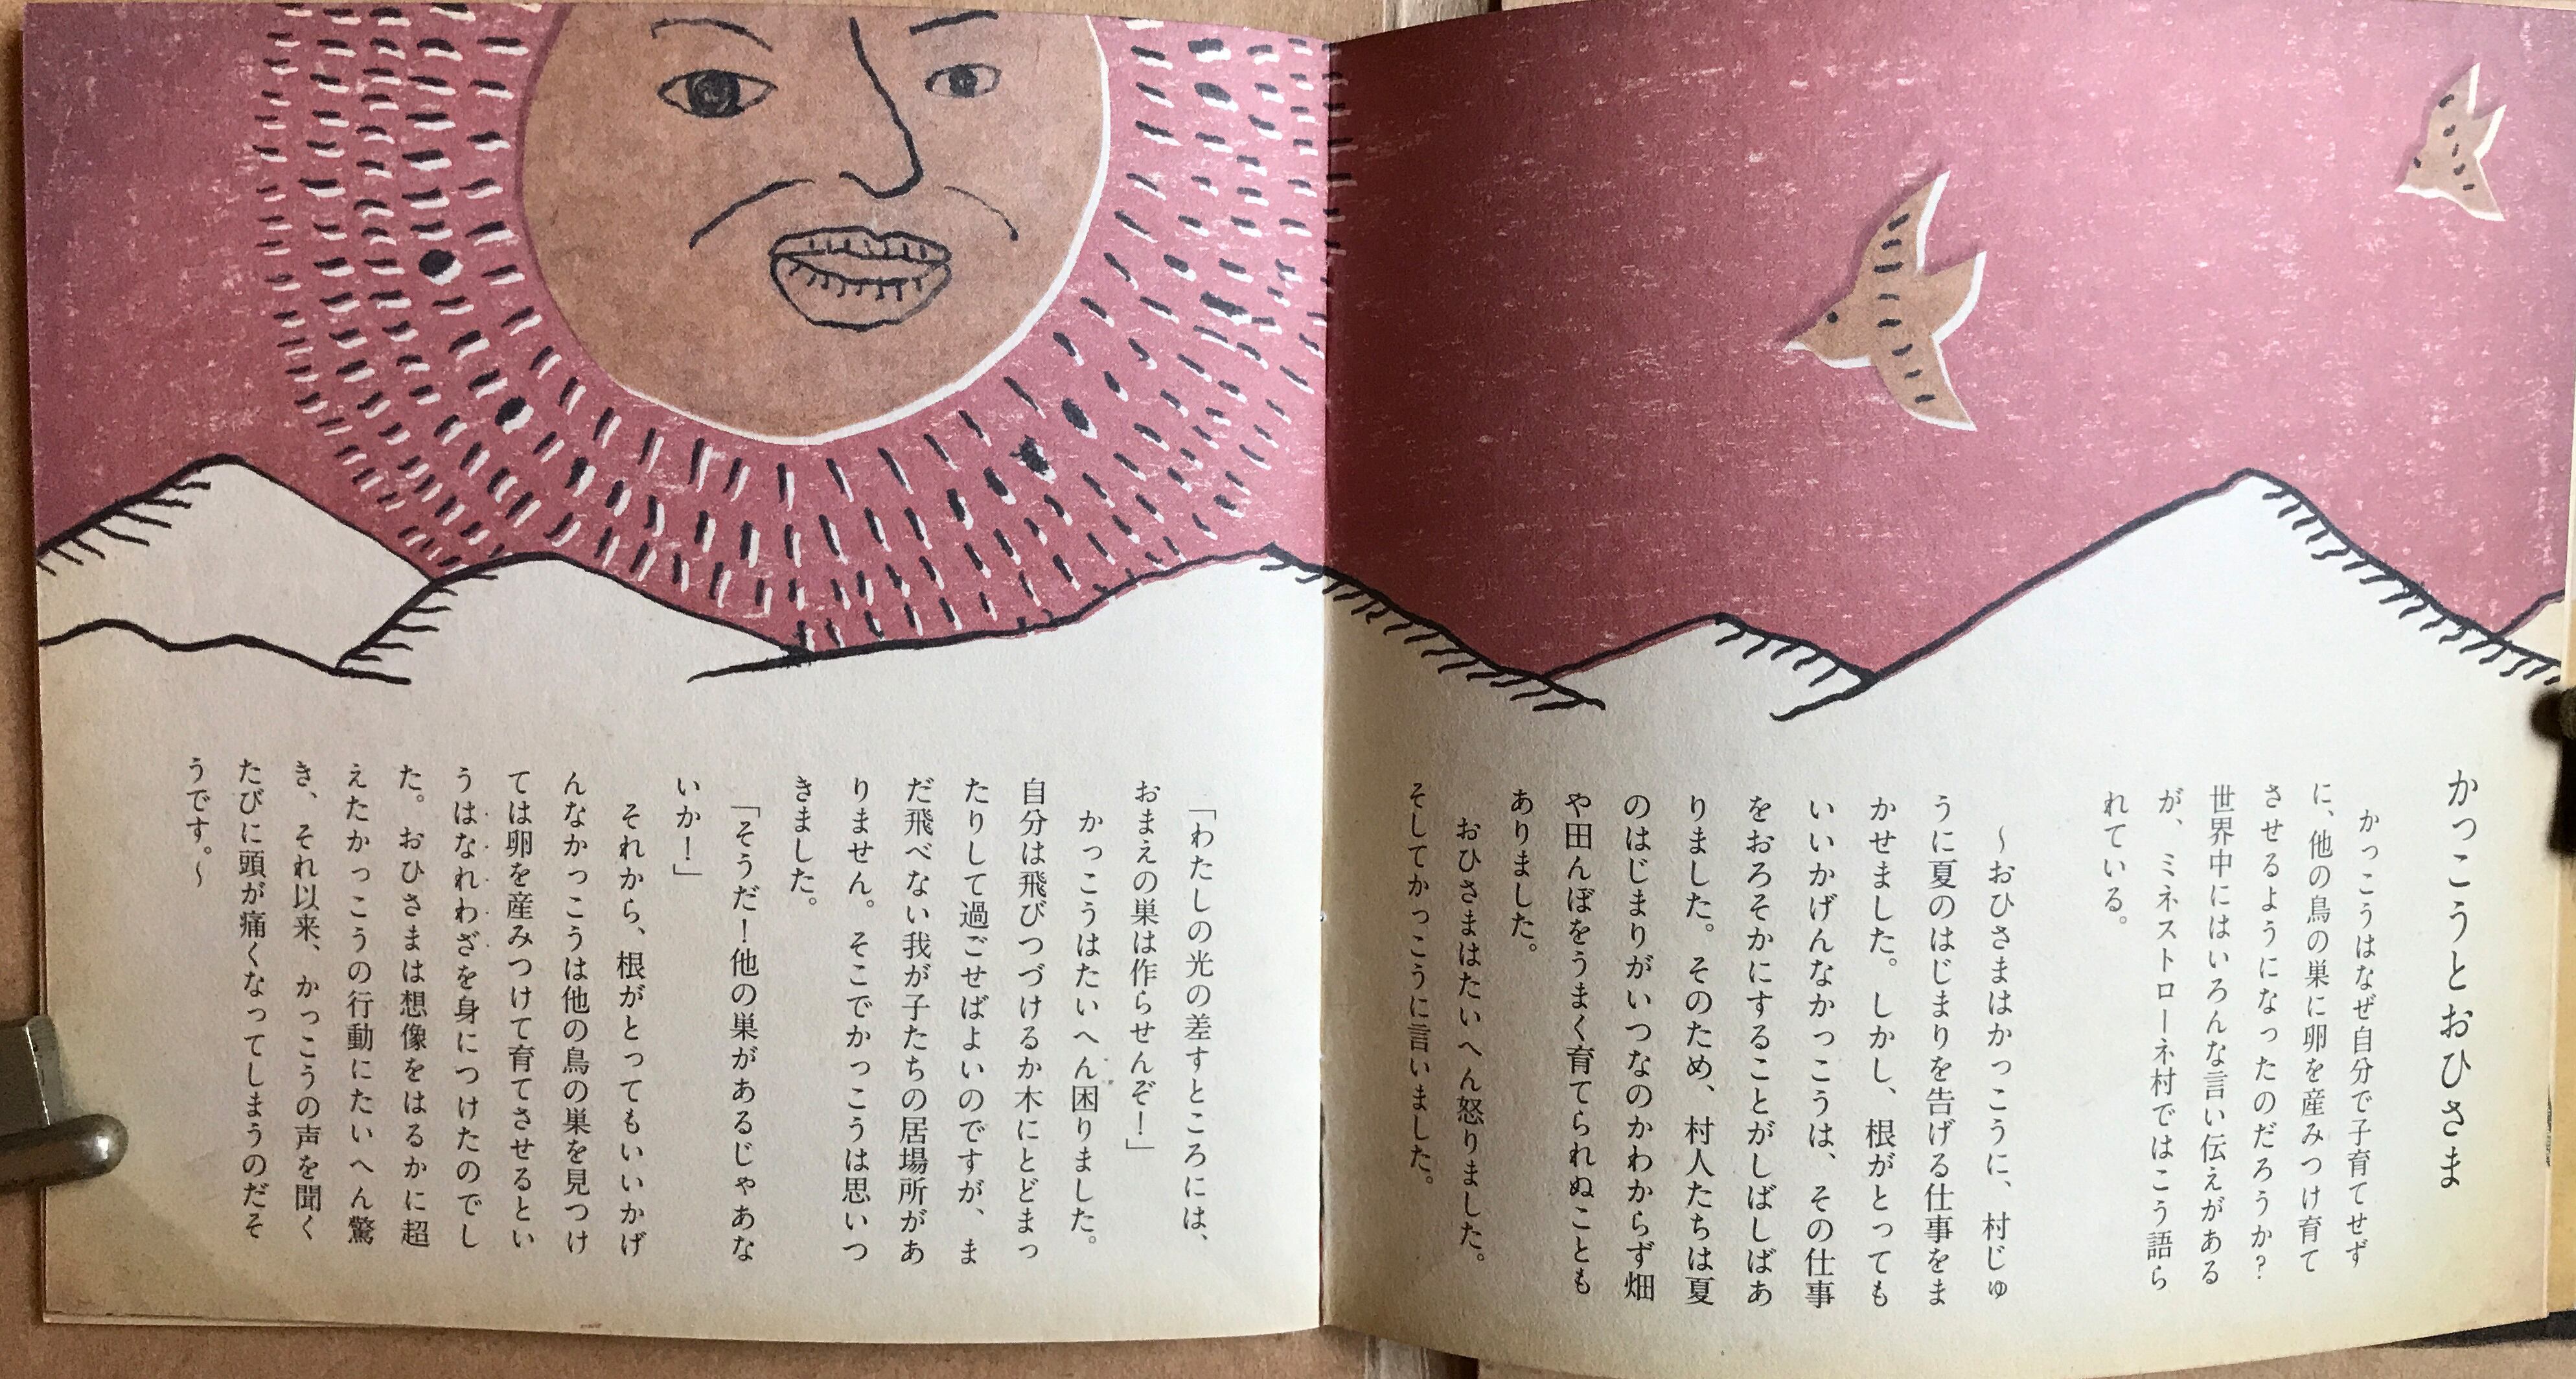 かっこうとおひさま
かっこうはなぜ自分で子育てせず
に、他の鳥の巣に卵を産みつけ育て
させるようになったのだろうか?
世界中にはいろんな言い伝えがある
が、ミネストローネ村ではこう語ら
れている。
〜おひさまはかっこうに、村じゅ
うに夏のはじまりを告げる仕事をま
かせました。しかし、根がとっても
いいかげんなかっこうは、その仕事
をおろそかにすることがしばしばあ
りました。そのため、村人たちは夏
のはじまりがいつなのかわからず畑
や田んぼをうまく育てられぬことも
ありました。
おひさまはたいへん怒りました。
そしてかっこうに言いました。
「わたしの光の差すところには、
おまえの巣は作らせんぞ!」
かっこうはたいへん困りました。
自分は飛びつづけるか木にとどまっ
たりして過ごせばよいのですが、ま
だ飛べない我が子たちの居場所があ
りません。そこでかっこうは思いつ
きました。
「そうだ!他の巣があるじゃあな
いか!」
それから、根がとってもいいかげ
んなかっこうは他の鳥の巣を見つけ
ては卵を産みつけて育てさせるとい
うはなれわざを身につけたのでし
た。おひさまは想像をはるかに超
えたかっこうの行動にたいへん驚
き、それ以来、かっこうの声を聞く
たびに頭が痛くなってしまうのだそ
うです。〜